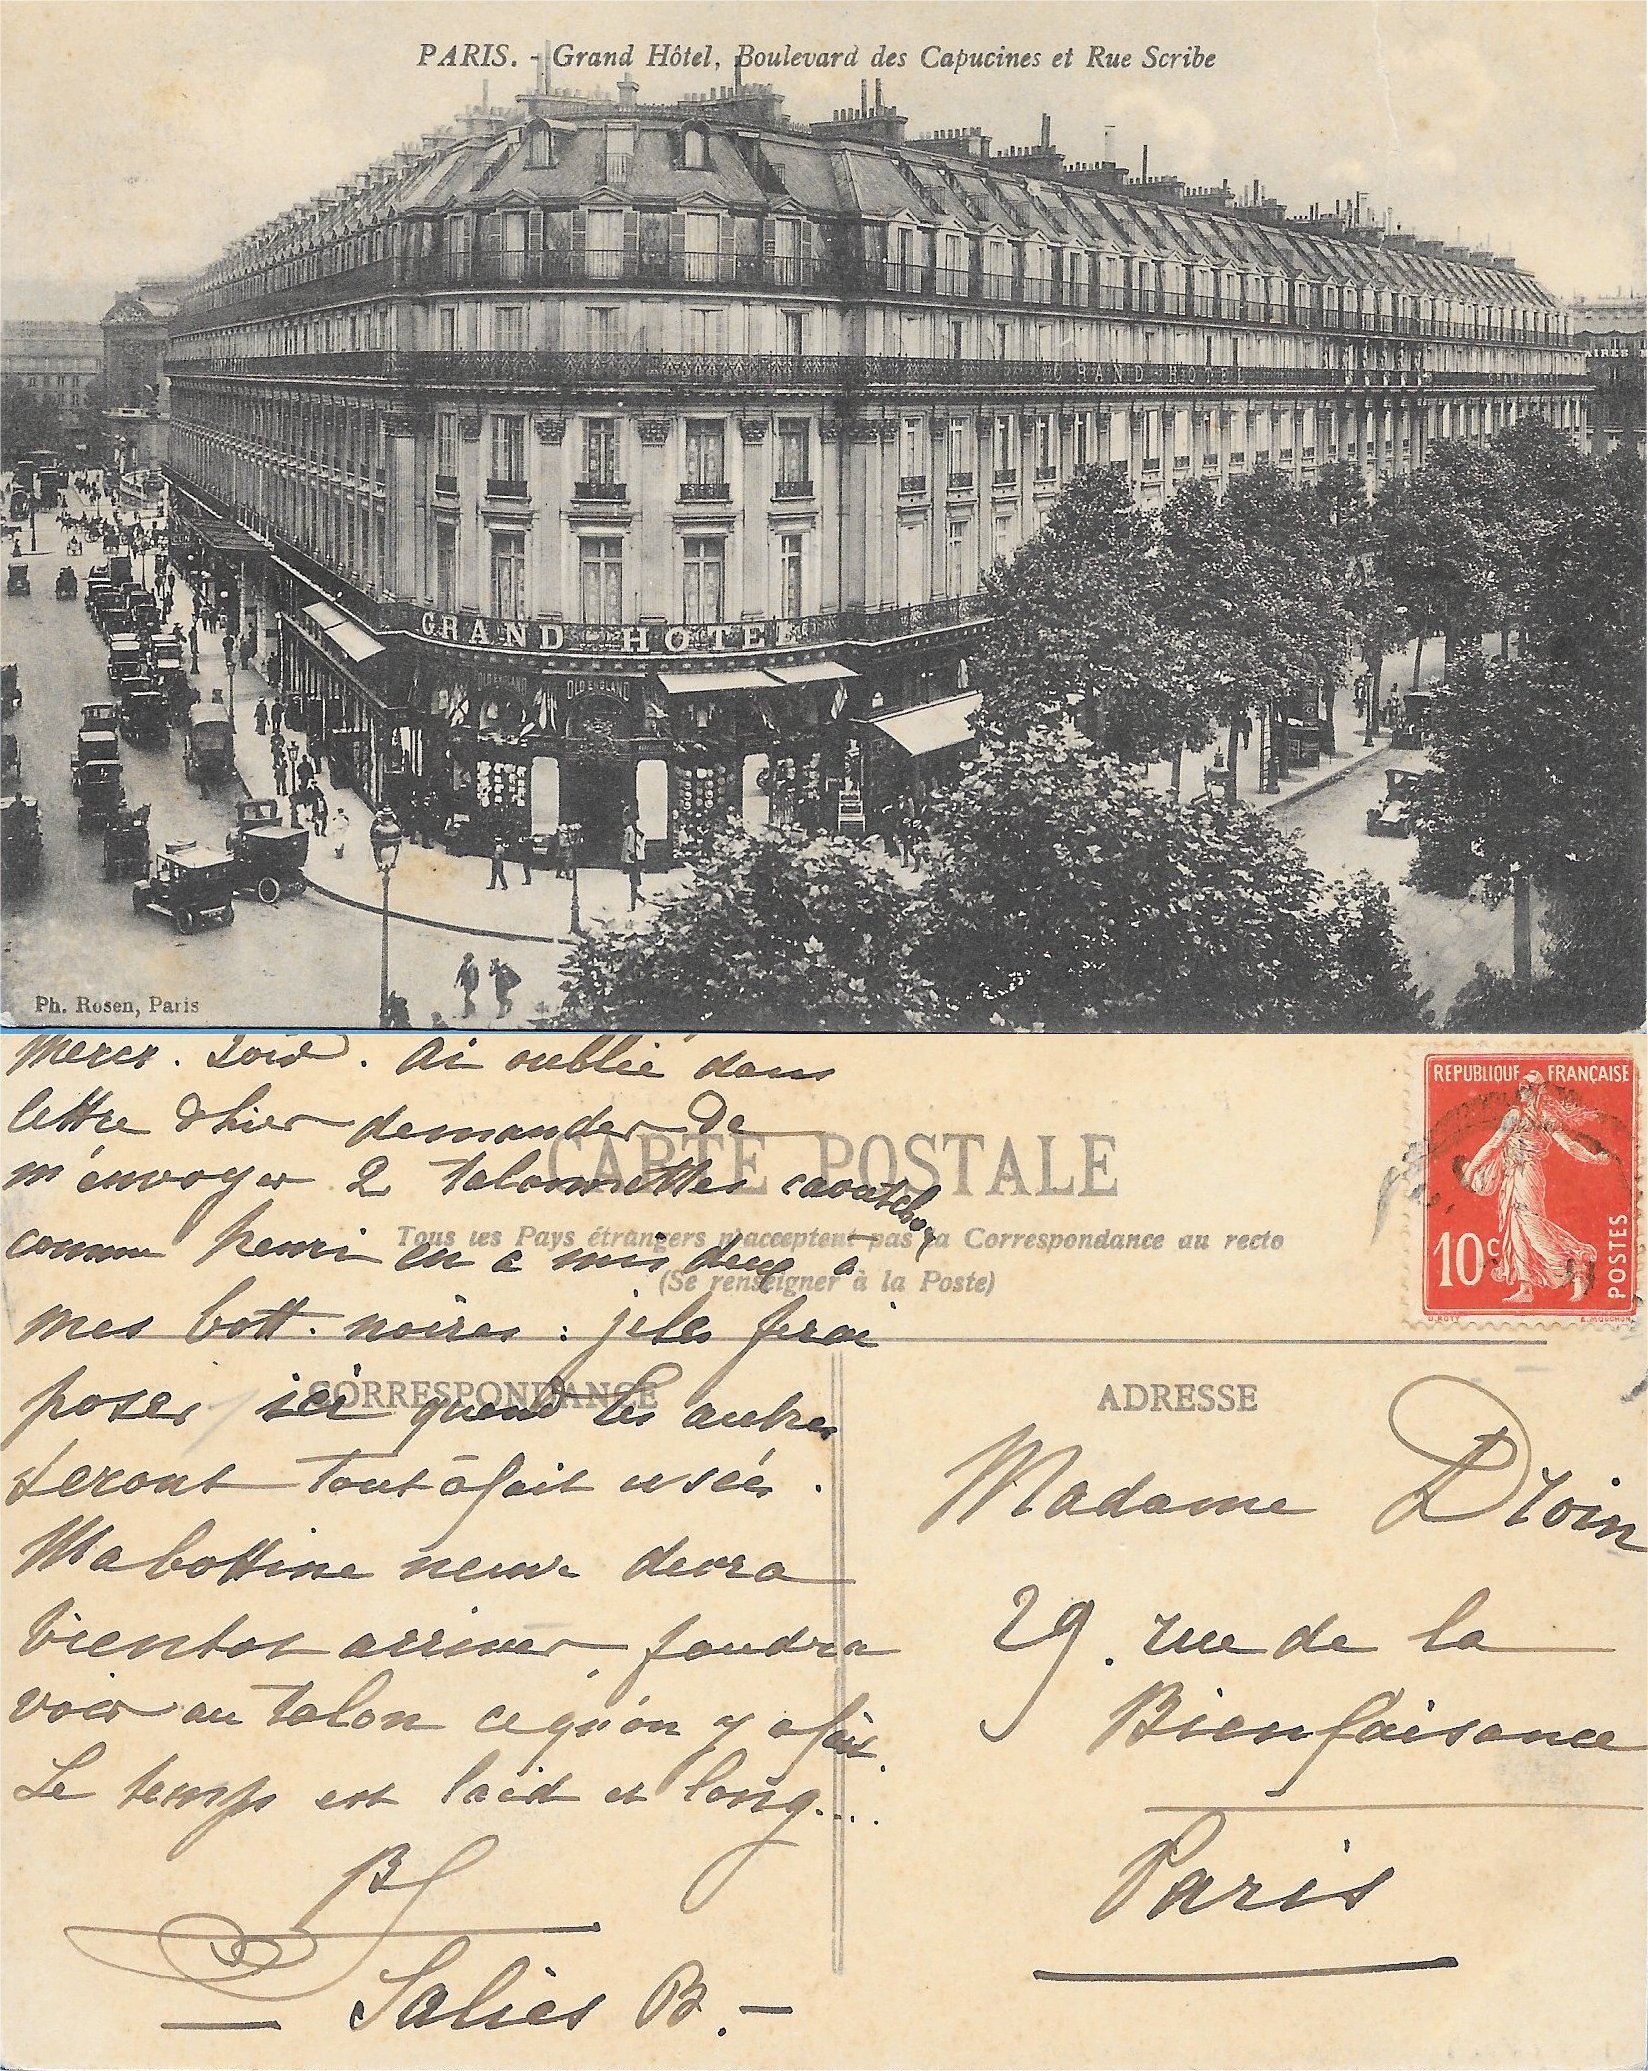 PARIS. - Grand Hôtel, Boulevard des Capucines et Rue Scribe
AIRES
GRAND-HOTEL
GRAND-HOTEL
OLD ENGLAND
OLD ENGLAND
Ph. Rosen, Paris
Merer. Soir. Ai oublié dans
lettre d'hier demander de
m'envoyer 2 talonnettes caoutchouc
comme henri en a mis deux à
mes bott. noires : je les ferai
poser ici quand les autres
seront tout à fait usées.
Ma bottine neuve devra
bientot arriver faudra
voir au talon ce qu'on y a fait.
Le temps est laid et long...
B
Salies B.-
CARTE POSTALE
Tous les Pays étrangers n'acceptent pas la Correspondance au recto
(Se renseigner à la Poste)
CORRESPONDANCE
ADRESSE
REPUBLIQUE FRANÇAISE
10c
POSTES
O. ROTY
E. MOUCHON
Madame Droin
29. rue de la
Bienfaisance
Paris